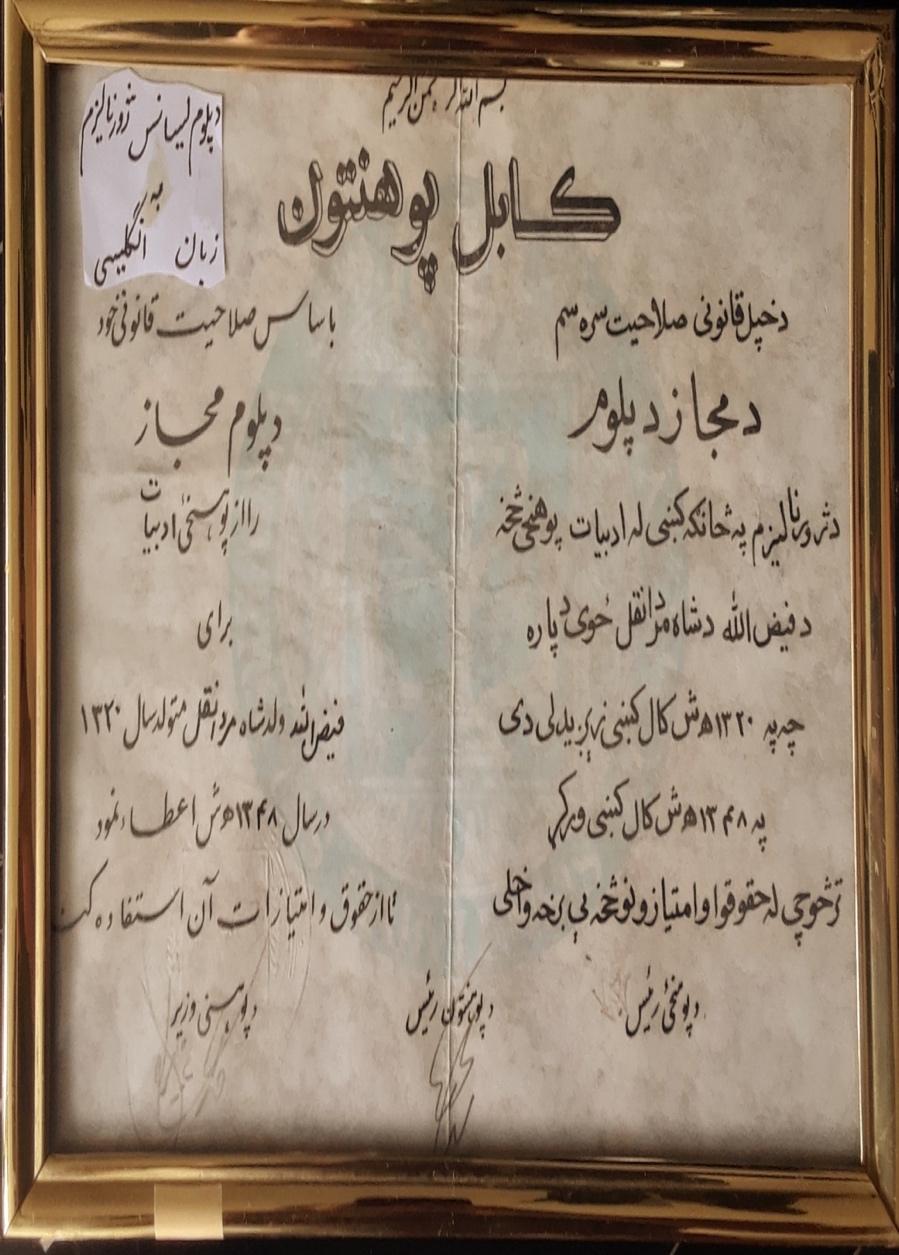 بسم الله الرحمن الرحیم
دپلوم لیسانس ژورنالیزم
به
زبان انگلیسی
کابل پوهنتون
دخپل قانونی صلاحیت سره سم
دمجاز دپلوم
دژورنالیزم په څانګه کښی له ادبیات پوهنځی څخه
دفیض الله دشاه مردانقل ځوی دپاره
چه په ۱۳۲۰ هـ ش کال کښی زیږیدلی دی
په ۱۳۴۸ هـ ش کال کښی ورکړ
ترڅوچی له حقوقو او امتیازونو څخه یې برخه واخلی
باساس صلاحیت قانونی خود
دپلوم مجاز
را از پوهنځی ادبیات
برای
فیض الله ولد شاه مردانقل متولد سال ۱۳۲۰
درسال ۱۳۴۸ هـ ش اعطاء نمود
تا از حقوق و امتیازات آن استفاده کند
دپوهنځی رئیس
دپوهنتون رئیس
دپوهنی وزیر